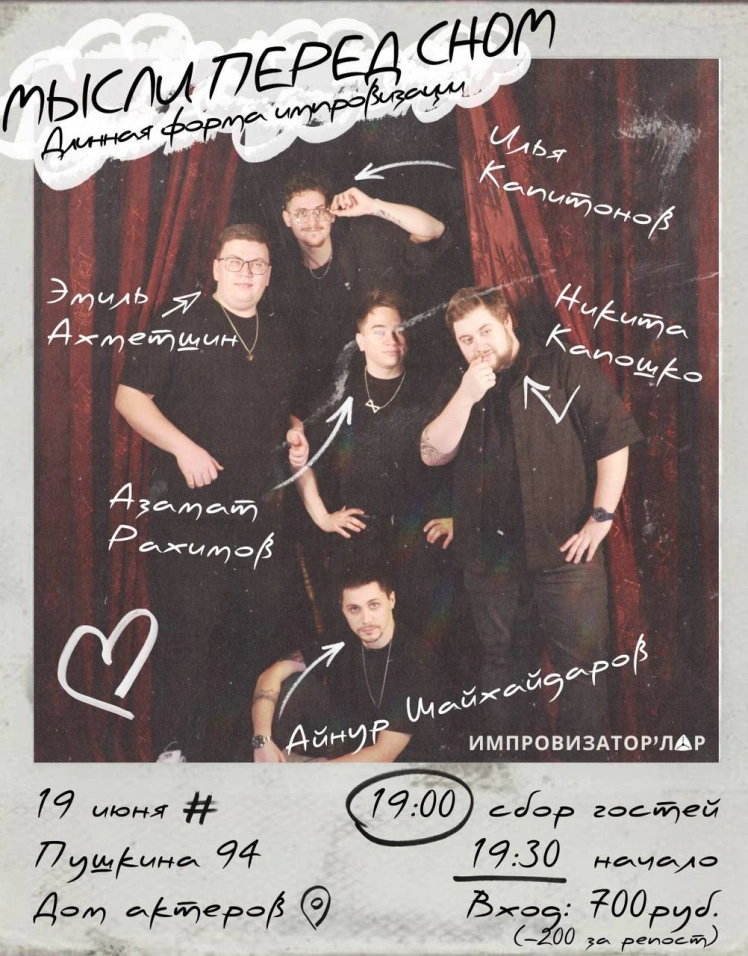 МЫСЛИ ПЕРЕД СНОМ
Длинная форма импровизации
Илья
Капитонов
Эмиль
Ахметшин
Никита
Капошко
Азамат
Рахимов
Айнур Шайхайдаров
ИМПРОВИЗАТОР'ЛАР
19 июня #
Пушкина 94
Дом актеров
19:00 сбор гостей
19:30 начало
Вход: 700руб.
(-200 за репост)